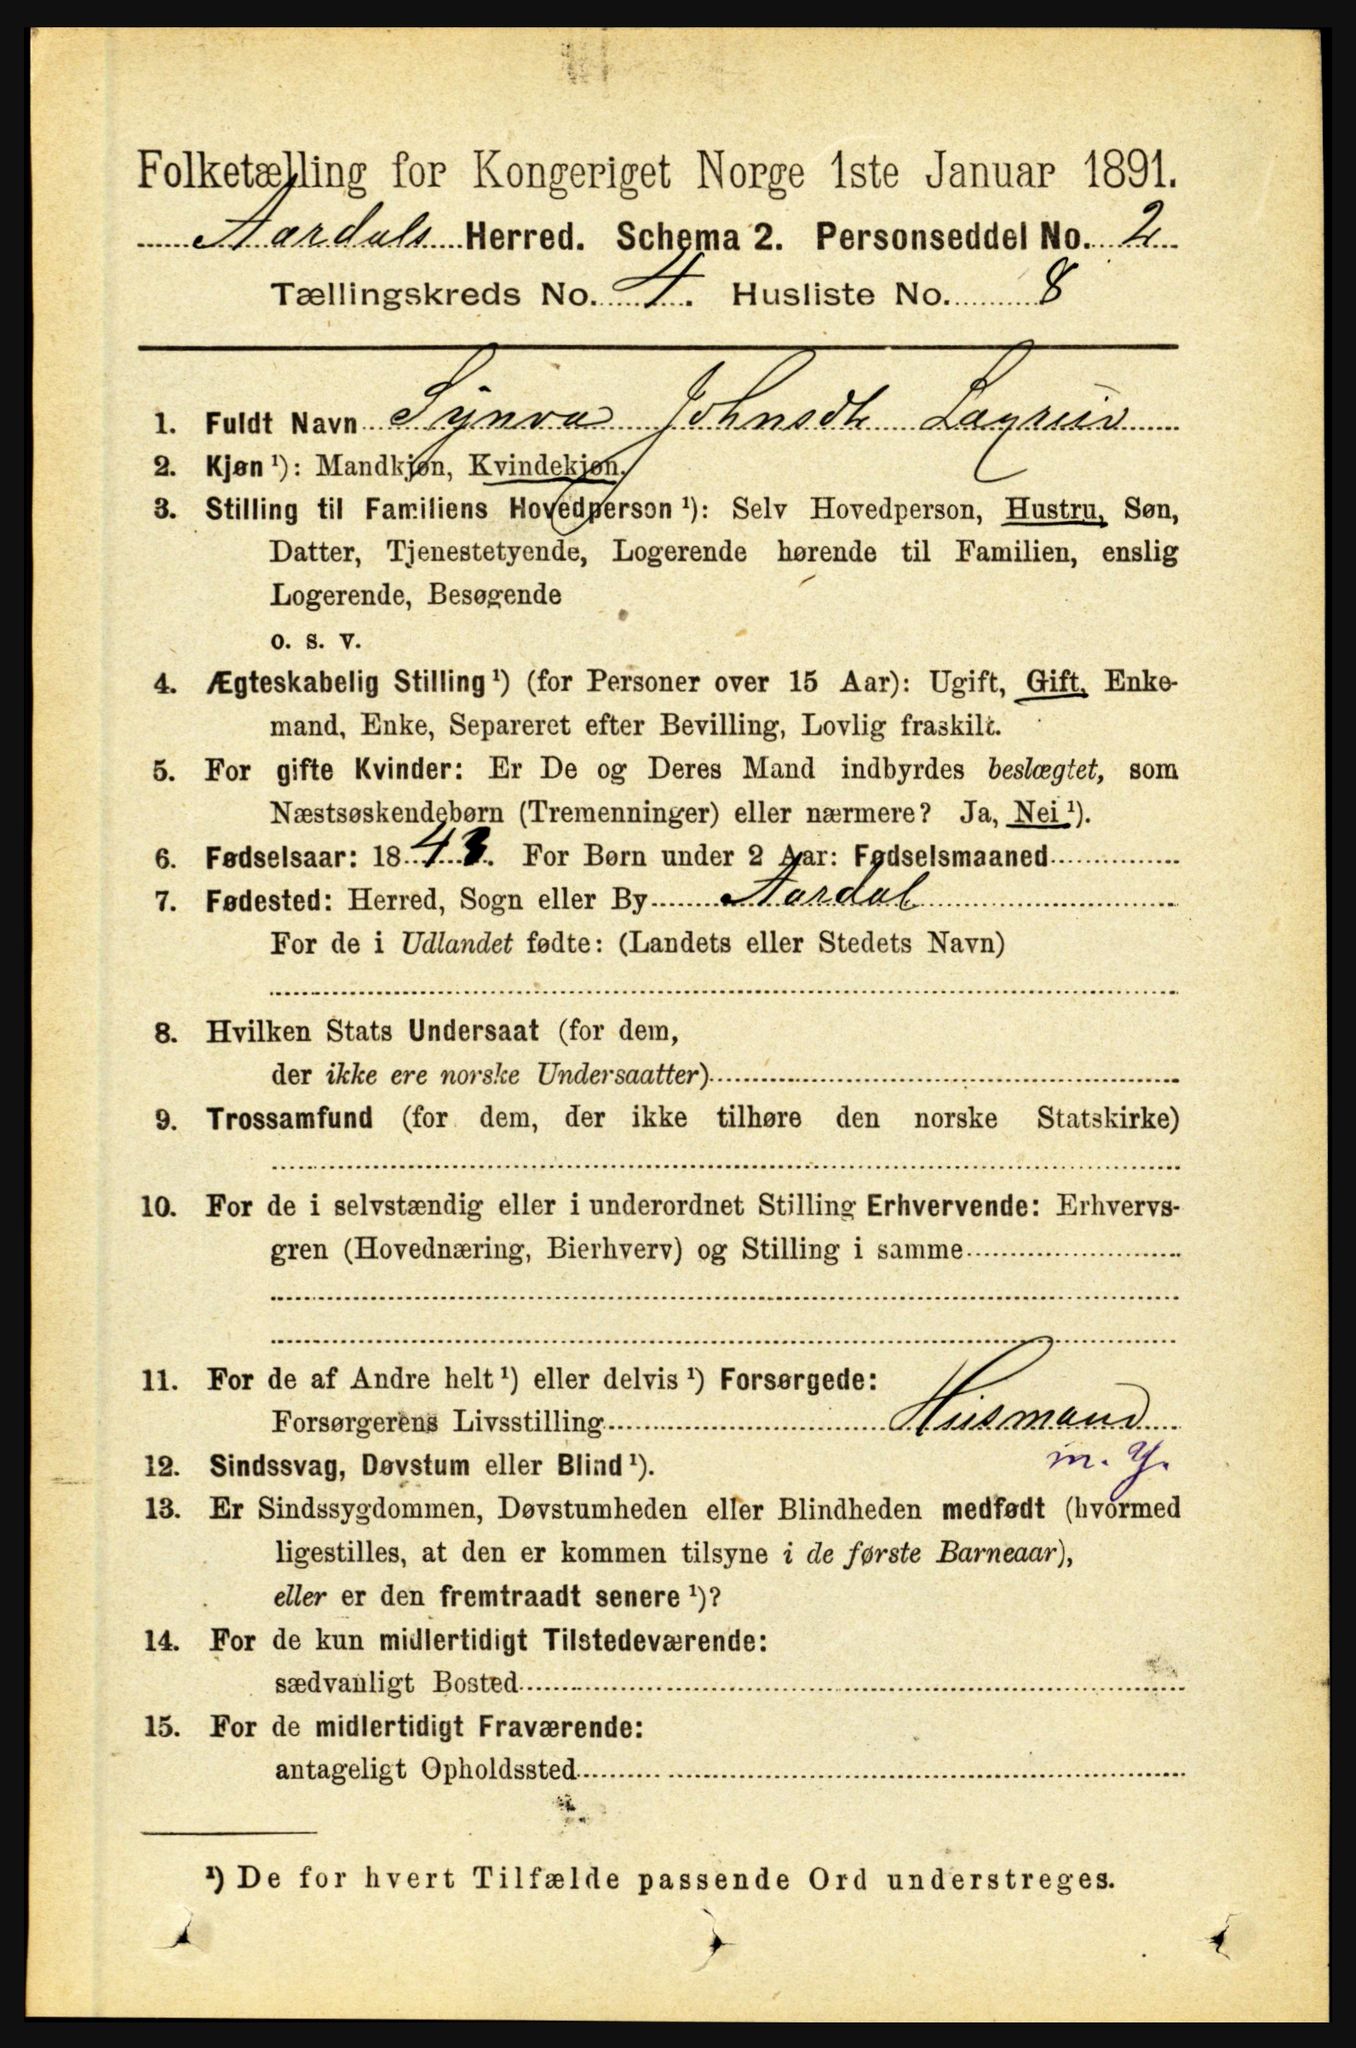 Folketælling for Kongeriget Norge 1ste Januar 1891.
Aardals Herred. Schema 2. Personseddel No. 2
Tællingskreds No. 4. Husliste No. 8
1. Fuldt Navn Synva Johnsdtr
2. Kjøn ¹): Mandkjøn, Kvindekjøn.
3. Stilling til Familiens Hovedperson ¹): Selv Hovedperson, Hustru, Søn,
Datter, Tjenestetyende, Logerende hørende til Familien, enslig
Logerende, Besøgende
o. s. v.
4. Ægteskabelig Stilling ¹) (for Personer over 15 Aar): Ugift, Gift, Enke-
mand, Enke, Separeret efter Bevilling, Lovlig fraskilt.
5. For gifte Kvinder: Er De og Deres Mand indbyrdes beslægtet, som
Næstsøskendebørn (Tremenninger) eller nærmere? Ja, Nei ¹).
6. Fødselsaar: 1843. For Børn under 2 Aar: Fødselsmaaned
7. Fødested: Herred, Sogn eller By Aardal
For de i Udlandet fødte: (Landets eller Stedets Navn)
8. Hvilken Stats Undersaat (for dem,
der ikke ere norske Undersaatter)
9. Trossamfund (for dem, der ikke tilhøre den norske Statskirke)
10. For de i selvstændig eller i underordnet Stilling Erhvervende: Erhvervs-
gren (Hovednæring, Bierhverv) og Stilling i samme
11. For de af Andre helt ¹) eller delvis ¹) Forsørgede:
Forsørgerens Livsstilling Husmand
m. J.
12. Sindssvag, Døvstum eller Blind ¹).
13. Er Sindssygdommen, Døvstumheden eller Blindheden medfødt (hvormed
ligestilles, at den er kommen tilsyne i de første Barneaar),
eller er den fremtraadt senere ¹)?
14. For de kun midlertidigt Tilstedeværende:
sædvanligt Bosted
15. For de midlertidigt Fraværende:
antageligt Opholdssted
¹) De for hvert Tilfælde passende Ord understreges.